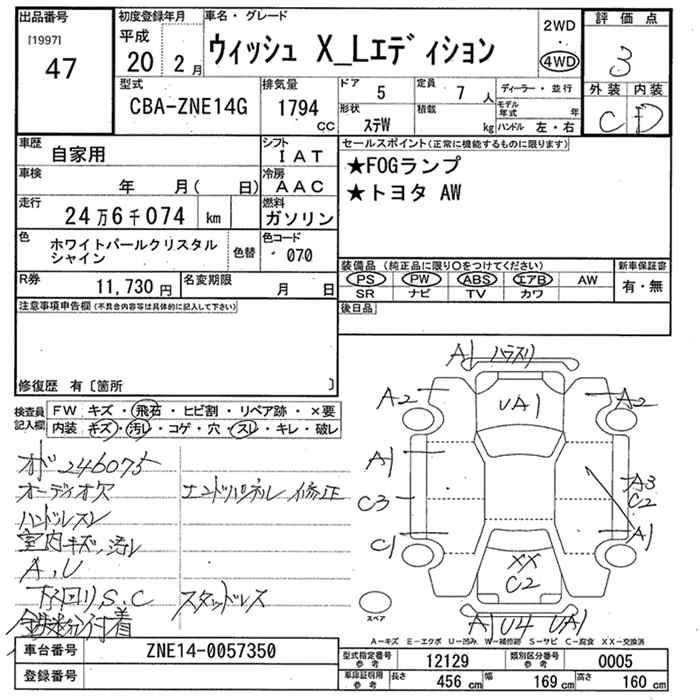 出品番号
[1997]
47
初度登録年月
平成
20 2 月
車名・グレード
ウィッシュ X_Lエディション
2WD
4WD
評価点
3
外装 内装
C D
型式
CBA-ZNE14G
排気量
1794 CC
ドア 5
形状 ステW
定員 7 人
積載 kg
ディーラー・並行
モデル年式 年
ハンドル 左・右
車歴
自家用
シフト
I A T
車検
年 月( 日)
冷房
A A C
走行
24万6千074 km
燃料
ガソリン
色
ホワイトパールクリスタル
シャイン
色替
色コード
070
R券
11,730 円
名変期限
月 日
セールスポイント(正常に機能するものに限ります)
★FOGランプ
★トヨタ AW
装備品(純正品に限り○をつけてください)
PS PW ABS エアB AW
SR ナビ TV カワ
新車保証書
有・無
後日品
注意事項申告欄(不具合内容等は具体的に記入して下さい)
修復歴 有〔箇所 〕
検査員記入欄
FW キズ・飛石・ヒビ割・リペア跡・×要
内装 キズ・汚レ・コゲ・穴・スレ・キレ・破レ
オド 246075
オーディオ欠 エンドパネル修正
ハンドルスレ
室内キズ、汚レ
A、U
下回りS、C スタッドレス
鉄粉付着
A1 ハラスリ
A2 UA1 A2
A1
C3 A3
C2
C1 A1
XX
C2
スペア
A1 U4 UA1
A-キズ E-エクボ U-凹み W-補修跡 S-サビ C-腐食 XX-交換済
車台番号 ZNE14-0057350
登録番号
型式指定番号 参考 12129 類別区分番号 参考 0005
車庫証明用 参考 長さ 456 cm 幅 169 cm 高さ 160 cm